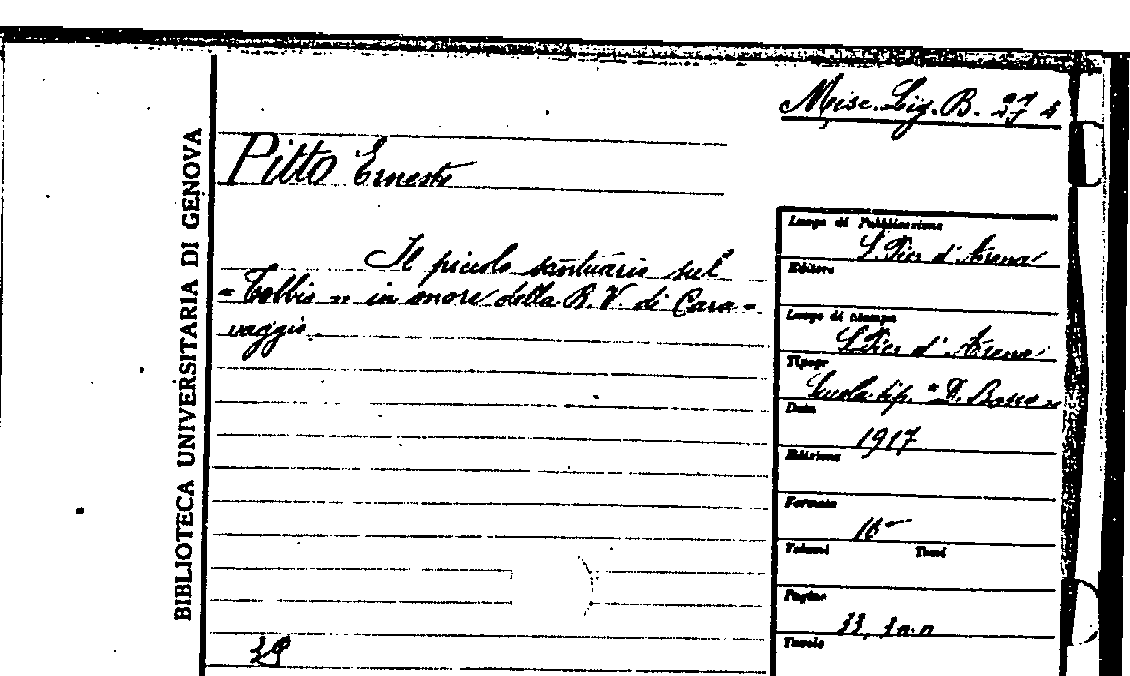 BIBLIOTECA UNIVERSITARIA DI GENOVA
Misc. Lig. B. 27
Pitto Ernesto
Il piccolo santuario sul
"Tobbio" in onore della B. V. di Cara-
vaggio.
Luogo di Pubblicazione
S. Pier d'Arena
Editore
Luogo di stampa
S. Pier d'Arena
Tipogr
Scuola tip. "D. Bosco"
Data
1917
Edizione
Formato
16°
Volumi Tomi
Pagine
33, 1 n.n
Tavole